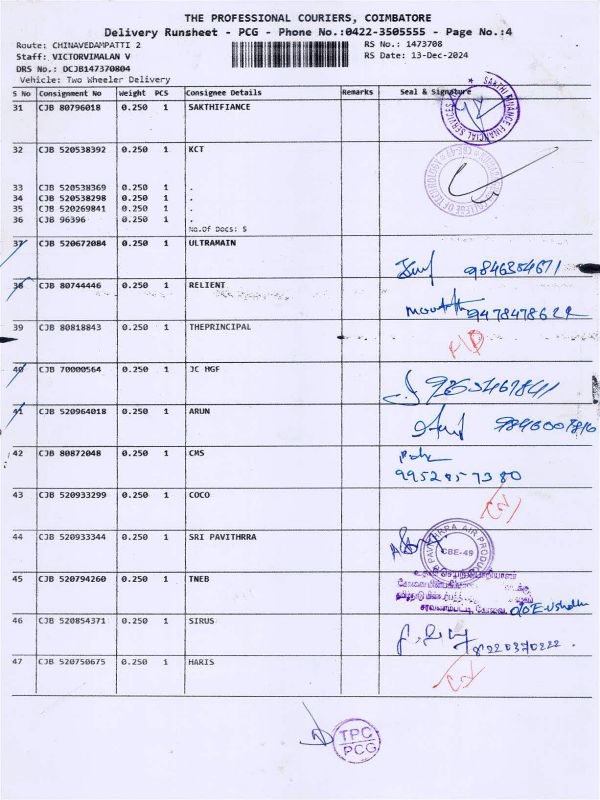 THE PROFESSIONAL COURIERS, COIMBATORE
Delivery Runsheet - PCG - Phone No.:0422-3505555 - Page No.:4
Route: CHINAVEDAMPATTI 2
RS No.: 1473708
Staff: VICTORVIMALAN V
RS Date: 13-Dec-2024
DRS No.: DCJB147370804
Vehicle: Two Wheeler Delivery
S No Consignment No Weight PCS Consignee Details Remarks Seal & Signature
31 CJB 80796018 0.250 1 SAKTHIFIANCE
SAKTHI FINANCE FINANCIAL SERVICES
32 CJB 520538392 0.250 1 KCT
COLLEGE OF TECHNOLOGY
33 CJB 520538369 0.250 1 .
34 CJB 520538298 0.250 1 .
35 CJB 520269841 0.250 1 .
36 CJB 96396 0.250 1 .
No.Of Docs: 5
37 CJB 520672084 0.250 1 ULTRAMAIN
9846354671
38 CJB 80744446 0.250 1 RELIENT
9478478622
39 CJB 80818843 0.250 1 THEPRINCIPAL
40 CJB 70000564 0.250 1 JC HGF
41 CJB 520964018 0.250 1 ARUN
42 CJB 80872048 0.250 1 CMS
9952057380
43 CJB 520933299 0.250 1 COCO
44 CJB 520933344 0.250 1 SRI PAVITHRRA
PAVITHRRA AIR PRODUC
CBE-49
45 CJB 520794260 0.250 1 TNEB
46 CJB 520854371 0.250 1 SIRUS
8220370222.
47 CJB 520750675 0.250 1 HARIS
TPC
PCG